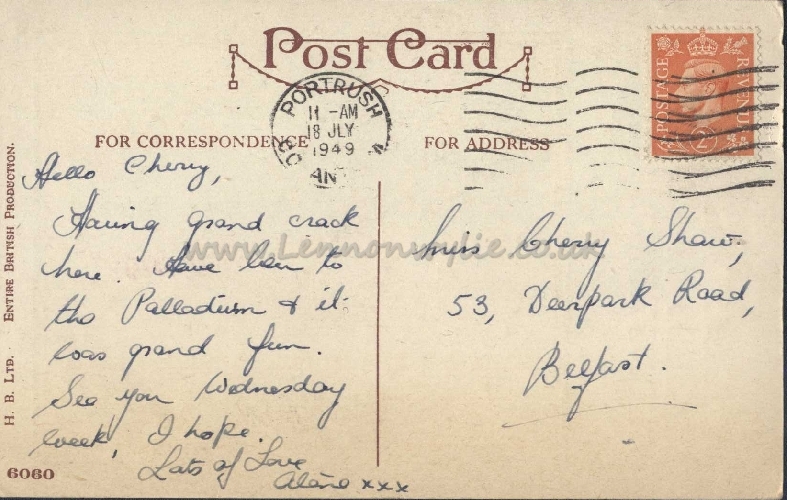 Post Card
PORTRUSH
11 -AM
18 JLY
1949
CO. AN
POSTAGE REVENUE
FOR CORRESPONDENCE
FOR ADDRESS
Hello Cherry,
Having grand crack
here. Have been to
the Palladium & it
was grand fun.
See you Wednesday
week, I hope.
Lots of Love
xxx
Miss Cherry Shaw,
53, Deerpark Road,
Belfast.
www.Lennonwylie.co.uk
H. B. LTD. ENTIRE BRITISH PRODUCTION.
6060